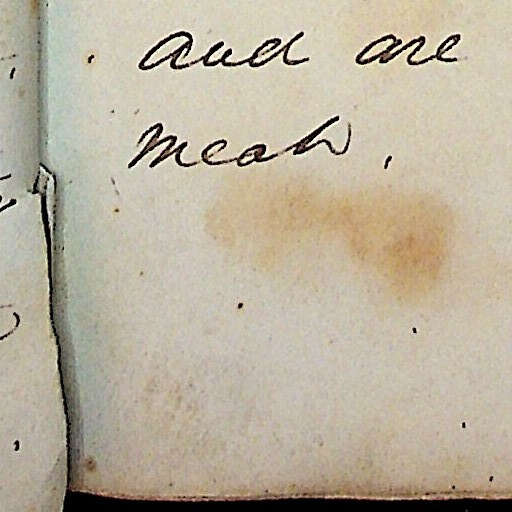 and are
meah,